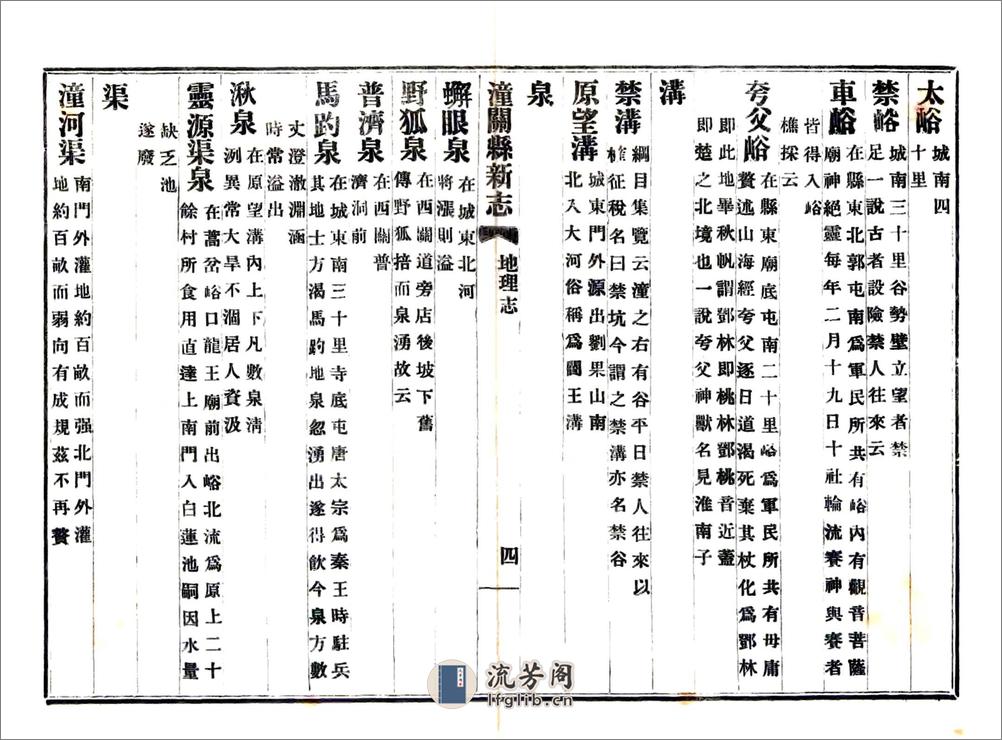 太峪城南四
十里
禁峪城南三十里谷勢壁立望者禁
足一說古者設險禁人往來云
車峪在縣東北郭屯南爲軍民所共有峪內有觀音菩薩
廟神絕靈每年二月十九日十社輪流賽神與賽者
皆得入峪
樵採云
夸父峪在縣東廟底屯南二十里峪爲軍民所共有毋庸
贅述山海經夸父逐日道渴死棄其杖化爲鄧林
即此地畢秋帆謂鄧林即桃林鄧桃音近蓋
即楚之北境也一說夸父神獸名見淮南子
溝
禁溝綱目集覽云潼之右有谷平日禁人往來以
榷征稅名曰禁坑今謂之禁溝亦名禁谷
原望溝城東門外源出劉果山南
北入大河俗稱爲閻王溝
泉
潼關縣新志 地理志 四
蠏眼泉在城東北河
將漲則溢
野狐泉在西關道旁店後坡下舊
傳野狐掊而泉湧故云
普濟泉在西關普
濟洞前
馬趵泉在城東南三十里寺底屯唐太宗爲秦王時駐兵
其地士方渴馬趵地泉忽湧出遂得飲今泉方數
丈澄澈淵涵
時常溢出
湫泉在原望溝內上下凡數泉淸
洌異常大旱不涸居人資汲
靈源渠泉在蒿岔峪口龍王廟前出峪北流爲原上二十
餘村所食用直達上南門入白蓮池嗣因水量
缺乏池
遂廢
渠
潼河渠南門外灌地約百畝而强北門外灌
地約百畝而弱向有成規茲不再贅
流芳阁
lfglib.cn